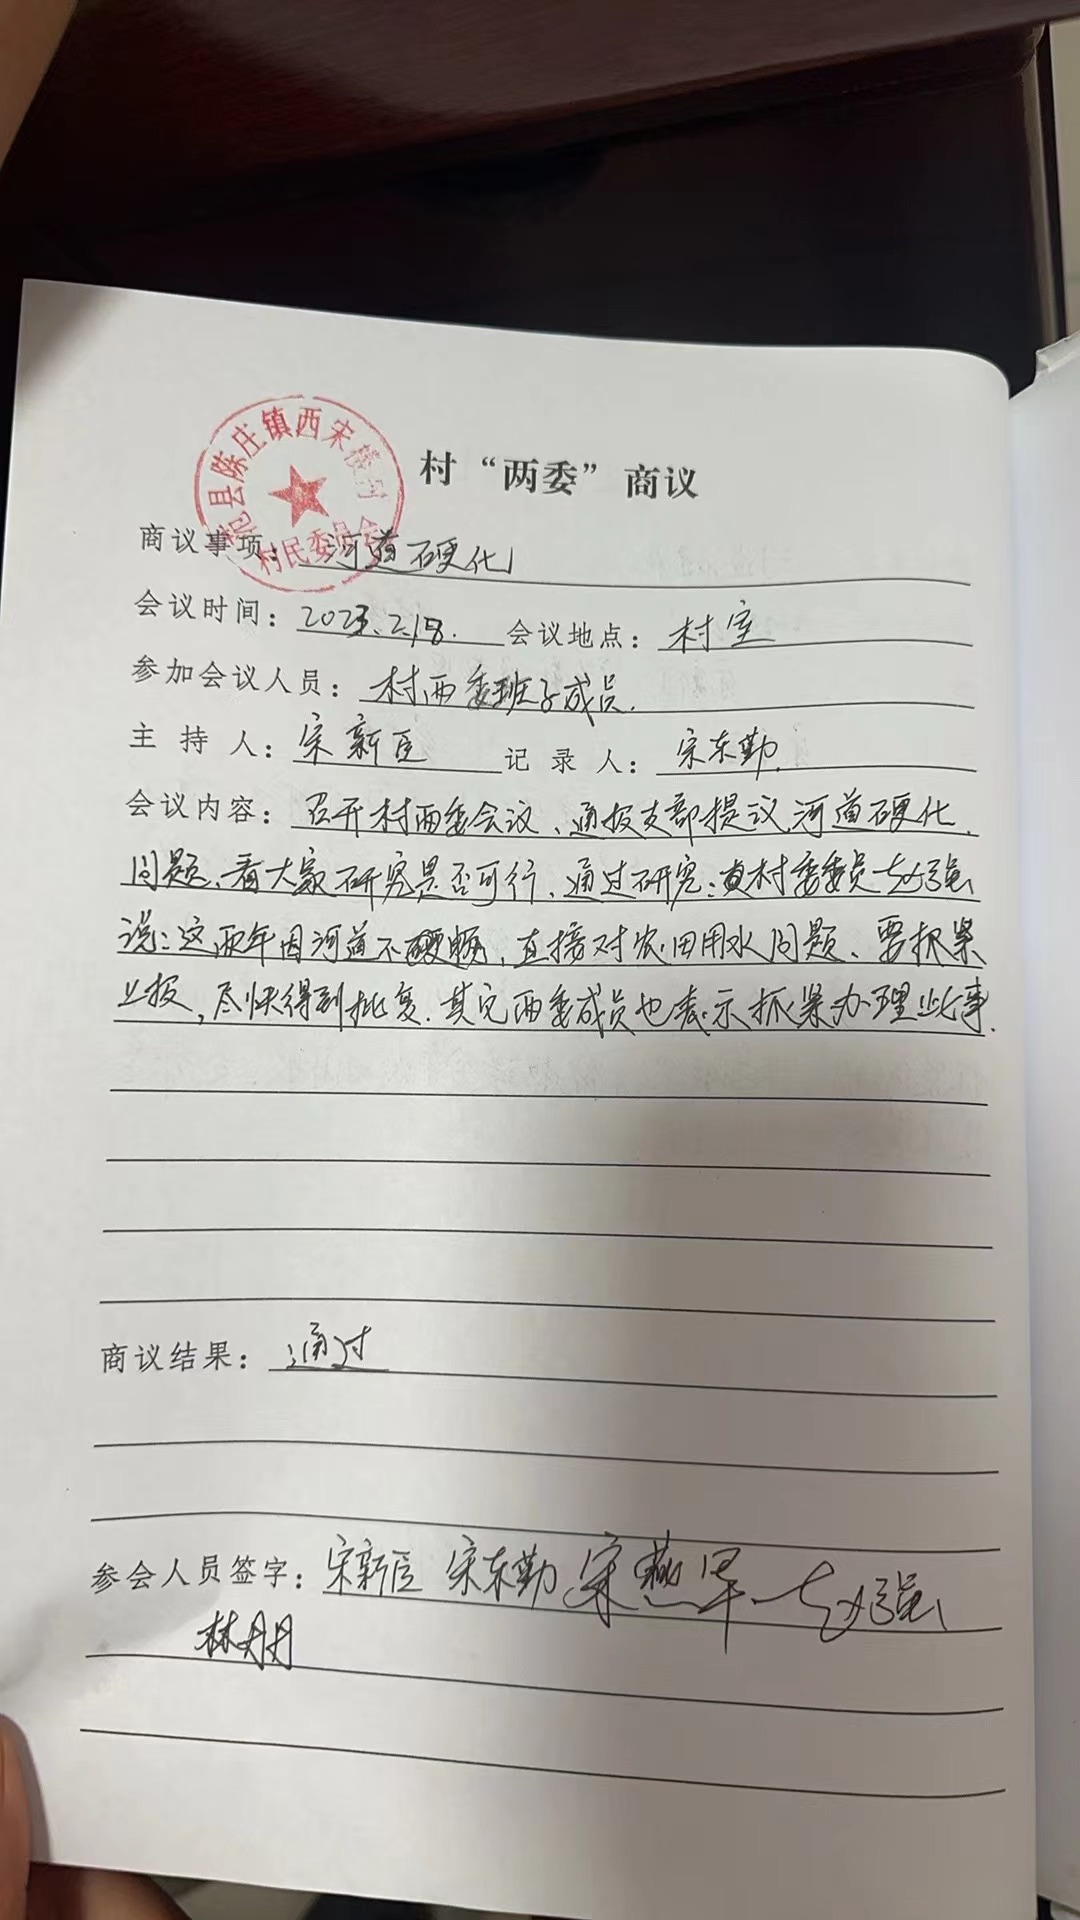 杞县陈庄镇西宋楼村
村民委员会
村“两委”商议
商议事项：河道硬化
会议时间：2023.2.18. 会议地点：村室
参加会议人员：村两委班子成员.
主持人：宋新臣 记录人：宋东勤.
会议内容：召开村两委会议、通报支部提议河道硬化.
问题、看大家研究是否可行、通过研究：村委委员 强
说：这两年因河道不顺畅，直接对农田用水问题、要抓紧
上报，尽快得到批复.其它两委成员也表示抓紧办理此事.
商议结果：通过
参会人员签字：宋新臣 宋东勤 宋燕 强
林朋